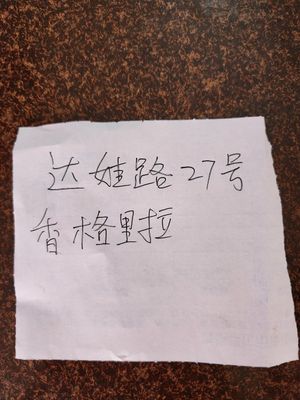 达娃路27号
香格里拉